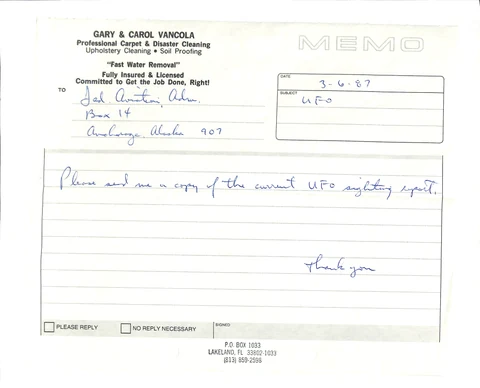 GARY & CAROL VANCOLA
Professional Carpet & Disaster Cleaning
Upholstery Cleaning • Soil Proofing
"Fast Water Removal"
Fully Insured & Licensed
Committed to Get the Job Done, Right!
MEMO
TO
Fed. Aviation Adm.
Box 14
Anchorage Alaska 907
DATE
3-6-87
SUBJECT
UFO
Please send me a copy of the current UFO sighting report.
Thank you
PLEASE REPLY
NO REPLY NECESSARY
SIGNED
P.O. BOX 1033
LAKELAND, FL 33802-1033
(813) 859-2596